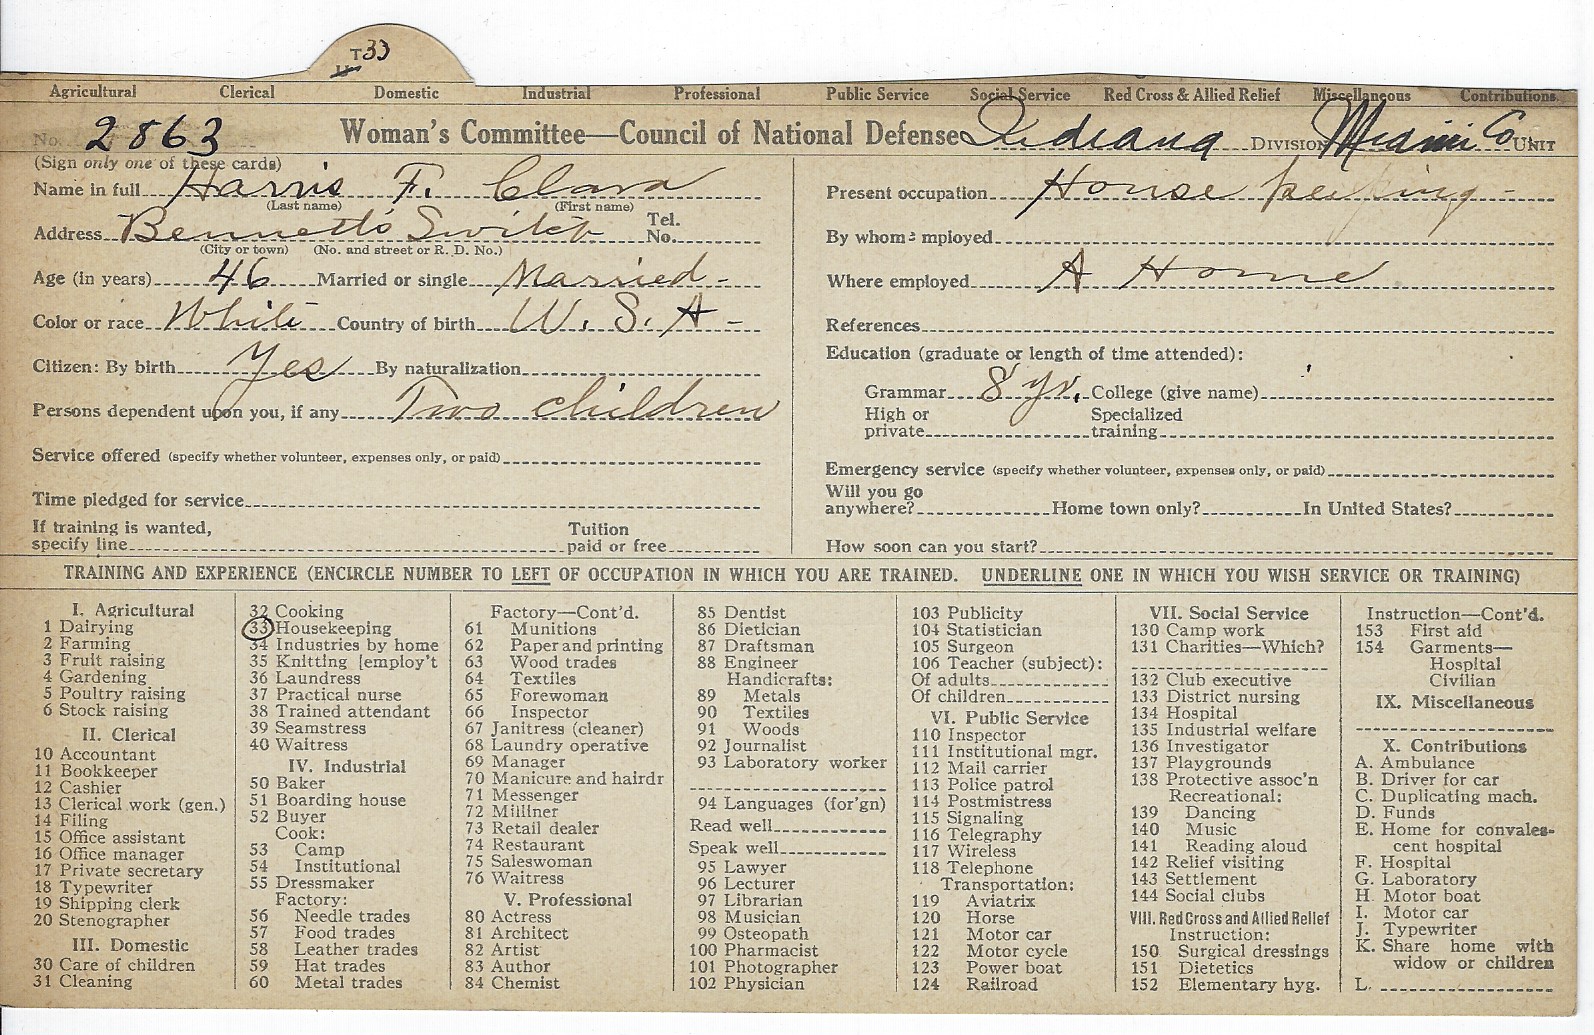 T33
Agricultural Clerical Domestic Industrial Professional Public Service Social Service Red Cross & Allied Relief Miscellaneous Contributions
No. 2863 Woman's Committee—Council of National Defense Indiana DIVISION Miami Co. UNIT
(Sign only one of these cards)
Name in full Harris F. Clara
(Last name) (First name)
Address Bennetts Switch Tel. No.
(City or town) (No. and street or R. D. No.)
Age (in years) 46 Married or single Married -
Color or race White Country of birth U. S. A -
Citizen: By birth Yes By naturalization
Persons dependent upon you, if any Two children
Service offered (specify whether volunteer, expenses only, or paid)
Time pledged for service
If training is wanted, specify line Tuition paid or free
Present occupation House peeking -
By whom employed
Where employed A Home
References
Education (graduate or length of time attended):
Grammar 8 yr. College (give name)
High or private Specialized training
Emergency service (specify whether volunteer, expenses only, or paid)
Will you go anywhere? Home town only? In United States?
How soon can you start?
TRAINING AND EXPERIENCE (ENCIRCLE NUMBER TO LEFT OF OCCUPATION IN WHICH YOU ARE TRAINED. UNDERLINE ONE IN WHICH YOU WISH SERVICE OR TRAINING)
I. Agricultural
1 Dairying
2 Farming
3 Fruit raising
4 Gardening
5 Poultry raising
6 Stock raising
II. Clerical
10 Accountant
11 Bookkeeper
12 Cashier
13 Clerical work (gen.)
14 Filing
15 Office assistant
16 Office manager
17 Private secretary
18 Typewriter
19 Shipping clerk
20 Stenographer
III. Domestic
30 Care of children
31 Cleaning
32 Cooking
33 Housekeeping
34 Industries by home
35 Knitting [employ't
36 Laundress
37 Practical nurse
38 Trained attendant
39 Seamstress
40 Waitress
IV. Industrial
50 Baker
51 Boarding house
52 Buyer
Cook:
53 Camp
54 Institutional
55 Dressmaker
Factory:
56 Needle trades
57 Food trades
58 Leather trades
59 Hat trades
60 Metal trades
Factory—Cont'd.
61 Munitions
62 Paper and printing
63 Wood trades
64 Textiles
65 Forewoman
66 Inspector
67 Janitress (cleaner)
68 Laundry operative
69 Manager
70 Manicure and hairdr
71 Messenger
72 Milliner
73 Retail dealer
74 Restaurant
75 Saleswoman
76 Waitress
V. Professional
80 Actress
81 Architect
82 Artist
83 Author
84 Chemist
85 Dentist
86 Dietician
87 Draftsman
88 Engineer
Handicrafts:
89 Metals
90 Textiles
91 Woods
92 Journalist
93 Laboratory worker
94 Languages (for'gn)
Read well
Speak well
95 Lawyer
96 Lecturer
97 Librarian
98 Musician
99 Osteopath
100 Pharmacist
101 Photographer
102 Physician
103 Publicity
104 Statistician
105 Surgeon
106 Teacher (subject):
Of adults
Of children
VI. Public Service
110 Inspector
111 Institutional mgr.
112 Mail carrier
113 Police patrol
114 Postmistress
115 Signaling
116 Telegraphy
117 Wireless
118 Telephone
Transportation:
119 Aviatrix
120 Horse
121 Motor car
122 Motor cycle
123 Power boat
124 Railroad
VII. Social Service
130 Camp work
131 Charities—Which?
132 Club executive
133 District nursing
134 Hospital
135 Industrial welfare
136 Investigator
137 Playgrounds
138 Protective assoc'n
Recreational:
139 Dancing
140 Music
141 Reading aloud
142 Relief visiting
143 Settlement
144 Social clubs
VIII. Red Cross and Allied Relief
Instruction:
150 Surgical dressings
151 Dietetics
152 Elementary hyg.
Instruction—Cont'd.
153 First aid
154 Garments—
Hospital
Civilian
IX. Miscellaneous
X. Contributions
A. Ambulance
B. Driver for car
C. Duplicating mach.
D. Funds
E. Home for convales-
cent hospital
F. Hospital
G. Laboratory
H. Motor boat
I. Motor car
J. Typewriter
K. Share home with
widow or children
L.